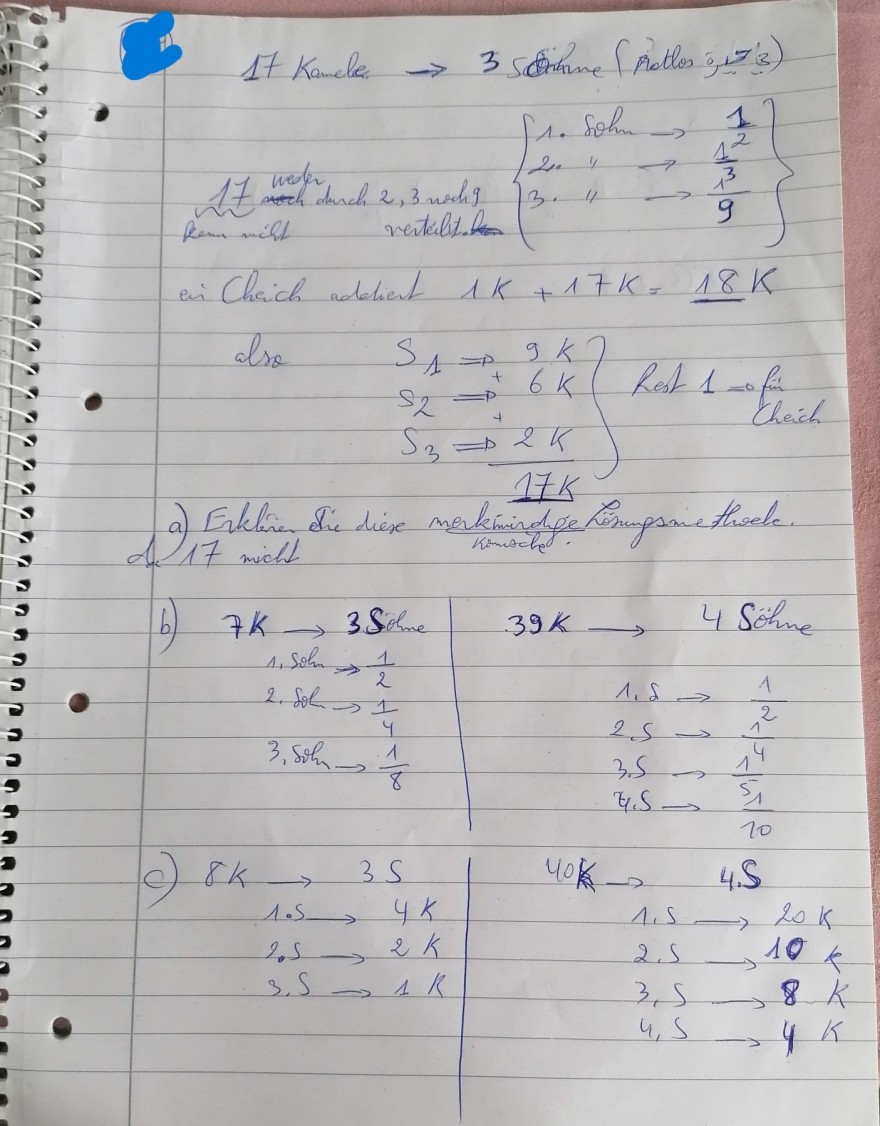 17 Kamele → 3 Söhne (Ratlos
1. Sohn → 1/2
2. " → 1/3
3. " → 1/9
17 weder durch 2, 3 noch 9
kann nicht verteilt.
ein Cheich addiert 1K + 17K = 18K
also S1 ⇒ 9 K
+
S2 ⇒ 6 K
+
S3 ⇒ 2 K
17K
Rest 1 → für
Cheich
a) Erklären Sie diese merkwürdige Lösungsmethode.
komische.
17 nicht
b) 7K → 3 Söhne
1. Sohn → 1/2
2. Soh → 1/4
3. Sohn → 1/8
39K → 4 Söhne
1. S → 1/2
2. S → 1/4
3. S → 1/5
4. S → 1/10
c) 8K → 3 S
1. S → 4 K
2. S → 2 K
3. S → 1 K
40K → 4. S
1. S → 20 K
2. S → 10 K
3, S → 8 K
4, S → 4 K